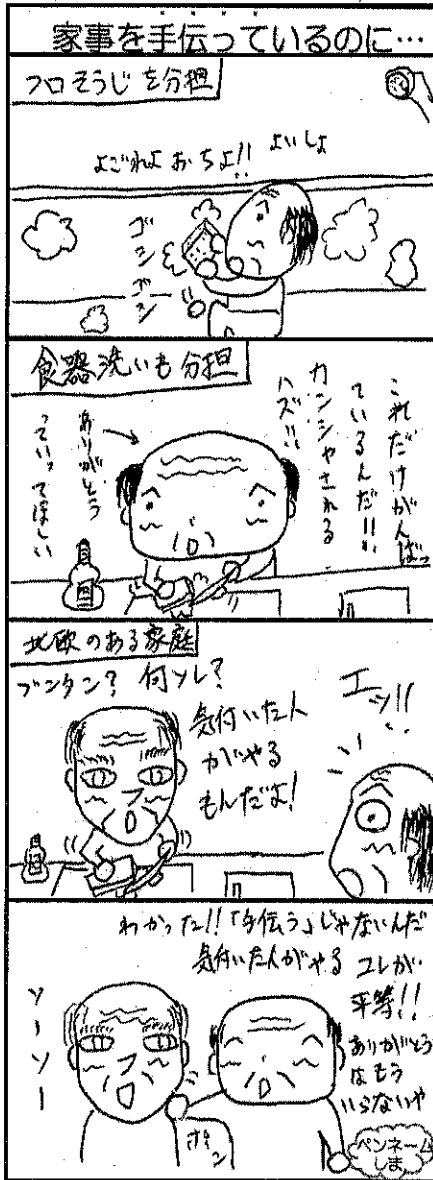 家事を手伝っているのに…
フロそうじを分担
よいしょ
よごれよおちよ!!
ゴシゴシ
食器洗いも分担
これだけがんばっ
ているんだ!!
カンシャされる
ハズ!!
ありがとう
っていってほしい
北欧のある家庭
ブンタン?何ソレ?
気付いた人
がやる
もんだよ!
エッ!!
わかった!!「手伝う」じゃないんだ
気付いた人がやるコレが
平等!!
ありがとう
はもう
いらないや
ソーソー
ポン
ペンネーム
しま